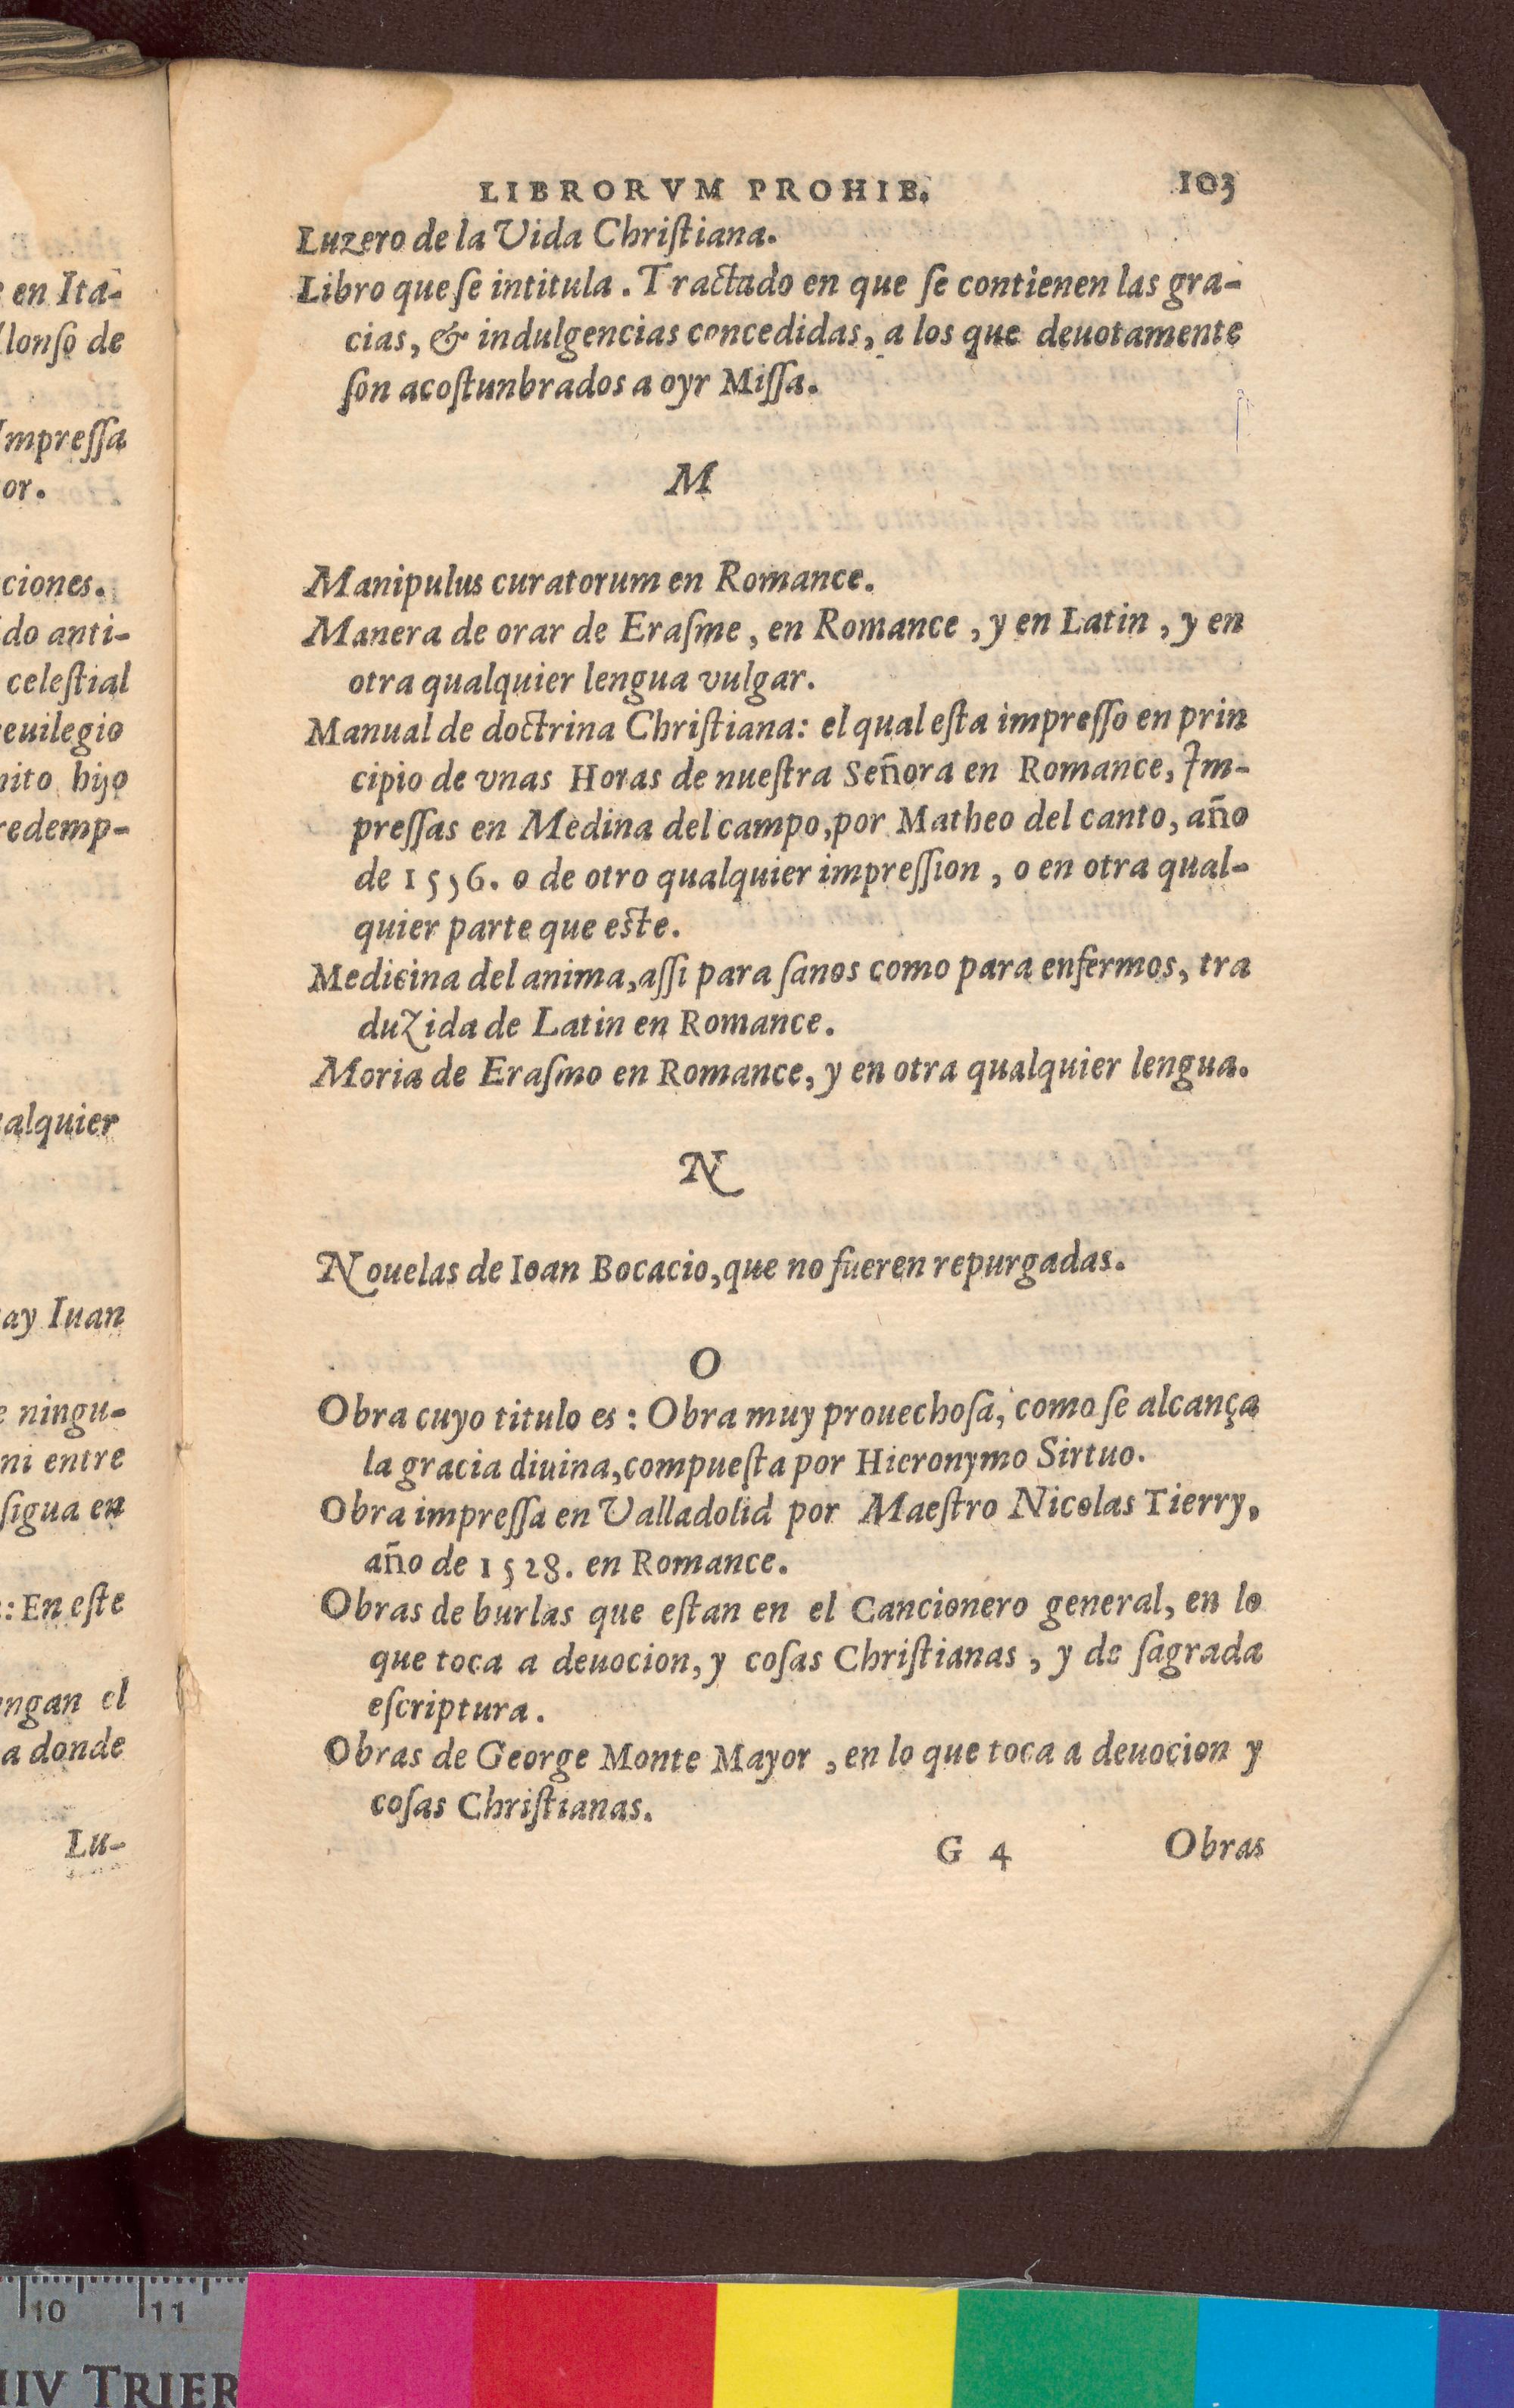 en Ita-
lonſo de
Impreſſa
or.
ciones.
do anti-
celeſtial
euilegio
nito hijo
redemp-
alquier
ay Iuan
e ningu-
ni entre
ſigua en
: En eſte
engan el
a donde
Lu-
LIBRORVM PROHIB. 103
Luzero de la Vida Chriſtiana.
Libro que ſe intitula. Tractado en que ſe contienen las gra-
cias, & indulgencias concedidas, a los que deuotamente
ſon acoſtunbrados a oyr Miſſa.
M
Manipulus curatorum en Romance.
Manera de orar de Eraſme, en Romance, y en Latin, y en
otra qualquier lengua vulgar.
Manual de doctrina Chriſtiana: el qual eſta impreſſo en prin
cipio de vnas Horas de nueſtra Señora en Romance, Im-
preſſas en Medina del campo, por Matheo del canto, año
de 1556. o de otro qualquier impreſſion, o en otra qual-
quier parte que eſte.
Medicina del anima, aſſi para ſanos como para enfermos, tra
duzida de Latin en Romance.
Moria de Eraſmo en Romance, y en otra qualquier lengua.
N
Nouelas de Ioan Bocacio, que no fueren repurgadas.
O
Obra cuyo titulo es: Obra muy prouechoſa, como ſe alcança
la gracia diuina, compueſta por Hieronymo Sirtuo.
Obra impreſſa en Valladolid por Maeſtro Nicolas Tierry,
año de 1528. en Romance.
Obras de burlas que eſtan en el Cancionero general, en lo
que toca a deuocion, y coſas Chriſtianas, y de ſagrada
eſcriptura.
Obras de George Monte Mayor, en lo que toca a deuocion y
coſas Chriſtianas.
G 4 Obras
10 11
HIV TRIER